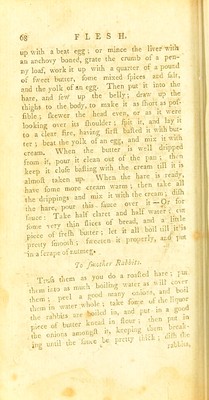 68 FLESH.
up with a beat egg; or mince the liver with
an anchovy boned, grate the crumb of a pen-
ny loaf, work it up with a quarter of a pound
of sweet butter, some mixed spices and salt,
and the yolk of an egg. Then put it into the
hare, and sew up the belly; draw up the
thighs to the body, to make it as short as pos-
sible; skewer the head even, or as it were
looking over its shoulder; spit it, and lay it
to a clear fire, having first basted it with but-
ter; beat the yolk of an egg, and mix it with
cream. When the butter is well dripped
from it, pour it clean out of the pan; then
keep it close basting with the cream till it is
almost taken up. When the hare is ready,
have some more cream warm; then take all
the drippings and mix it with the cream; dish
the hare, pour this sauce over it—Or for
sauce: Take half claret and half water; cut
some very thin slices of bread, and a little
piece of fresh butter; let it all boil till it is
pretty smooth; sweeten it properly, and put
in a scrape of nutmeg.
To smother Rabbits.
Truss them as you do a roasted hare; put
them into as much boiling water as will cover
them; peel a good many onions, and boil
them in water whole; take some of the liquor
the rabbits are boiled in, and put in a good
piece of butter knead in flour; then put in
the onions amongst it, keeping them break-
ing until the sauce be pretty thick; dish the
rabbits,